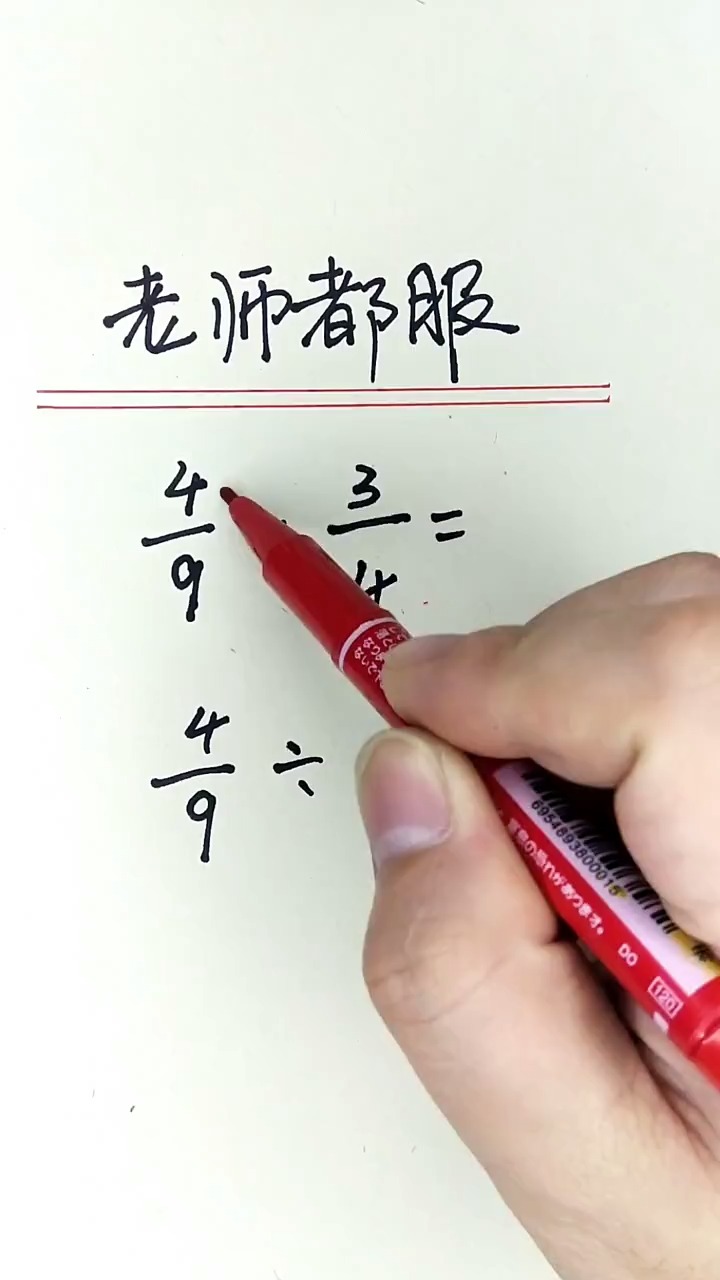 老师都服
4/9 3/4 =
4/9 ÷
6954893800015
DO
120